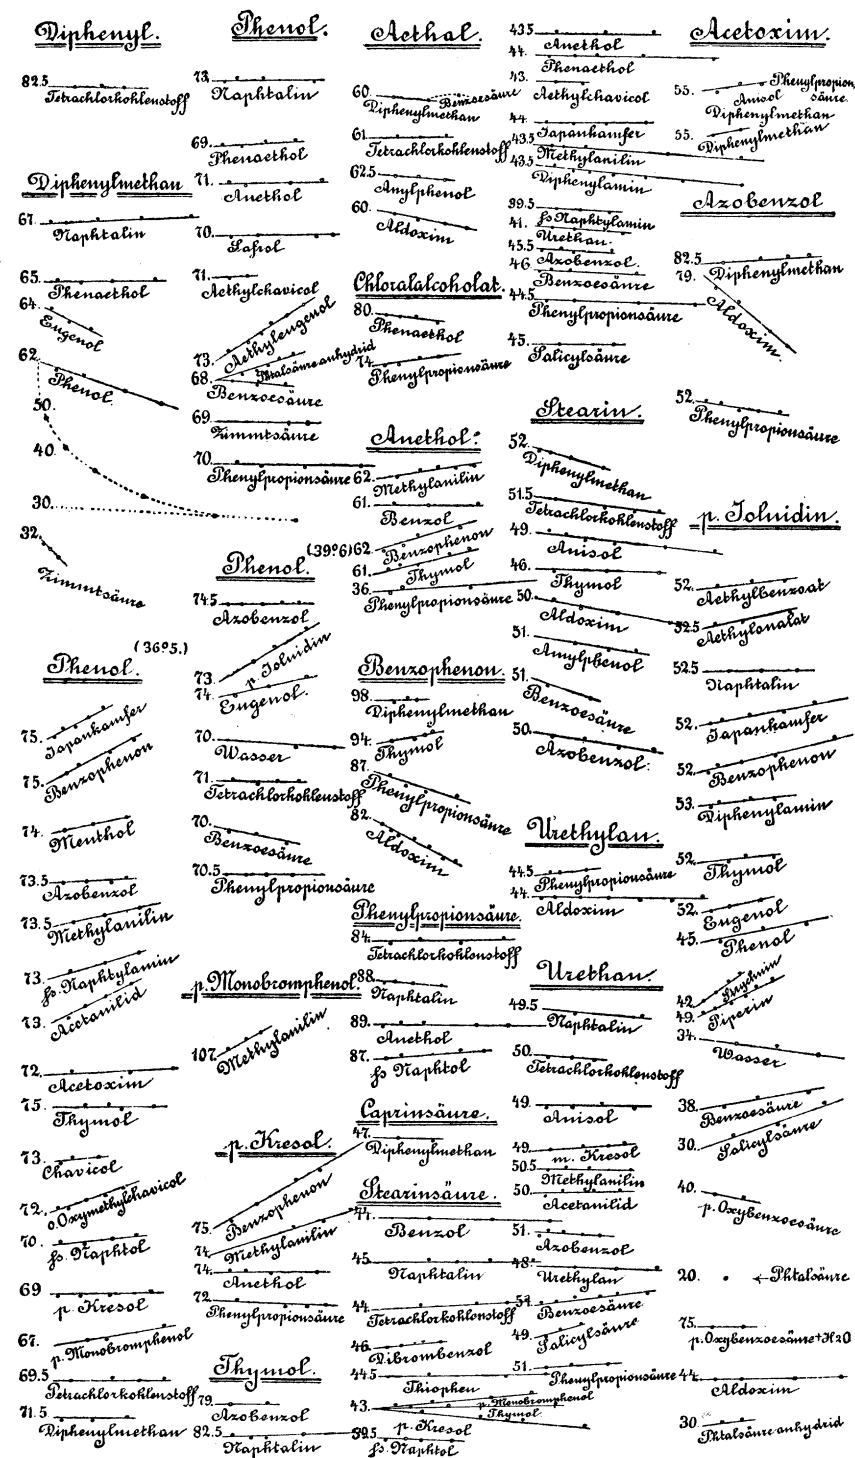 Diphenyl.
82.5
Tetrachlorkohlenstoff
Diphenylmethan
67.
Naphtalin
65.
Phenaethol
64.
Eugenol
62.
Phenol.
50.
40.
30.
32.
Zimmtsäure
(36°5.)
Phenol.
75.
Japankamfer
75.
Benzophenon
74.
Menthol
73.5
Azobenzol
73.5
Methylanilin
73.
β. Naphtylamin
73.
Acetanilid
72.
Acetoxim
75.
Thymol
73.
Chavicol
72.
o.Oxymethylchavicol
70.
β. Naphtol
69
p. Kresol
67.
p. Monobromphenol
69.5
Tetrachlorkohlenstoff
71.5
Diphenylmethan
Phenol.
73.
Naphtalin
69.
Phenaethol
71.
Anethol
70.
Safrol
71.
Aethylchavicol
73.
Aethyleugenol
68.
Phtalsäureanhydrid
Benzoesäure
69
Zimmtsäure
70.
Phenylpropionsäure
(39°6)
Phenol.
74.5
Azobenzol
73.
p. Toluidin
74.
Eugenol.
70.
Wasser
71.
Tetrachlorkohlenstoff
70.
Benzoesäure
70.5
Phenylpropionsäure
p. Monobromphenol.
107.
Methylanilin
p. Kresol.
75.
Benzophenon
74.
Methylanilin
74.
Anethol
72.
Phenylpropionsäure
Thymol.
79.
Azobenzol
82.5
Naphtalin
Aethal.
60.
Diphenylmethan
Benzoesäure
61.
Tetrachlorkohlenstoff
62.5
Amylphenol
60.
Aldoxim
Chloralalcoholat.
80.
Phenaethol
74.
Phenylpropionsäure
Anethol.
62.
Methylanilin
61.
Benzol
62.
Benzophenon
61.
Thymol
36.
Phenylpropionsäure
Benzophenon.
98.
Diphenylmethan
94.
Thymol
87.
Phenylpropionsäure
82.
Aldoxim
Phenylpropionsäure.
84.
Tetrachlorkohlenstoff
88.
Naphtalin
89.
Anethol
87.
β Naphtol
Caprinsäure.
47.
Diphenylmethan
Stearinsäure.
44.
Benzol
45.
Naphtalin
44.
Tetrachlorkohlenstoff
46.
Dibrombenzol
44.5
Thiophen
43.
p. Monobromphenol
Thymol
p. Kresol
39.5
β. Naphtol
43.5
Anethol
44.
Phenaethol
43.
Aethylchavicol
44.
Japankamfer
43.5
Methylanilin
43.5
Diphenylamin
39.5
β Naphtylamin
41.
Urethan.
45.5
Azobenzol.
46.
Benzoesäure
44.5
Phenylpropionsäure
45.
Salicylsäure
Stearin.
52.
Diphenylmethan
51.5
Tetrachlorkohlenstoff
49.
Anisol
46.
Thymol
50.
Aldoxim
51.
Amylphenol
51.
Benzoesäure
50.
Azobenzol.
Urethylan.
44.5
Phenylpropionsäure
44.
Aldoxim
Urethan.
49.5
Naphtalin
50.
Tetrachlorkohlenstoff
49.
Anisol
49.
m. Kresol
50.5
Methylanilin
50.
Acetanilid
51.
Azobenzol
48.
Urethylan
51.
Benzoesäure
49.
Salicylsäure
51.
Phenylpropionsäure
Acetoxim.
55.
Phenylpropionsäure.
Anisol
Diphenylmethan
55.
Diphenylmethan
Azobenzol
82.5
Diphenylmethan
79.
Aldoxim.
52.
Phenylpropionsäure
p. Toluidin.
52.
Aethylbenzoat
52.5
Aethyloxalat
52.5
Naphtalin
52.
Japankamfer
52.
Benzophenon
53.
Diphenylamin
52.
Thymol
52.
Eugenol
45.
Phenol
42.
Strychnin
49.
Piperin
34.
Wasser
38.
Benzoesäure
30.
Salicylsäure
40.
p. Oxybenzoesäure
20.
←Phtalsäure
75.
p. Oxybenzoesäure+H2O
44.
Aldoxim
30.
Phtalsäureanhydrid